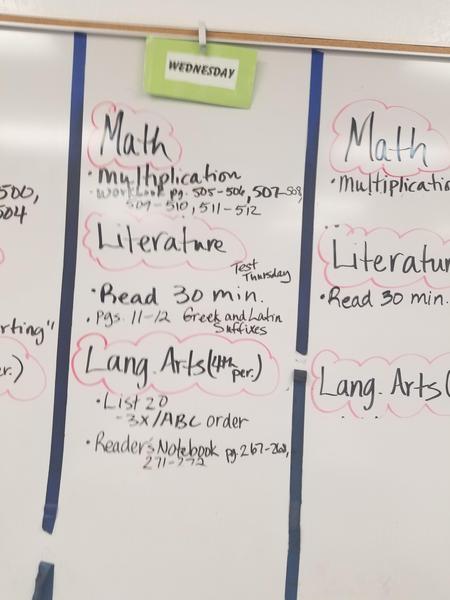 WEDNESDAY
500,
504
rting"
er.)
Math
• Multiplication
• Workbook pg. 505-506, 507-508,
509-510, 511-512
Literature
Test
Thursday
• Read 30 min.
• Pgs. 11-12 Greek and Latin
Suffixes
Lang. Arts (4th
per.)
• List 20
- 3x/ABC order
• Reader's Notebook pg. 267-268,
271-272
Math
• Multiplicatio
Literatur
• Read 30 min.
Lang. Arts (